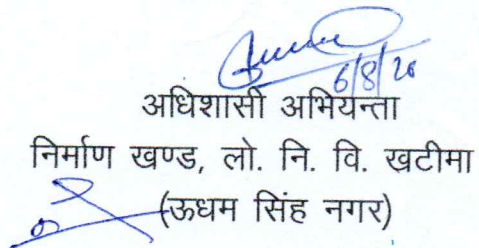 6/8/20
अधिशासी अभियन्ता
निर्माण खण्ड, लो. नि. वि. खटीमा
(ऊधम सिंह नगर)